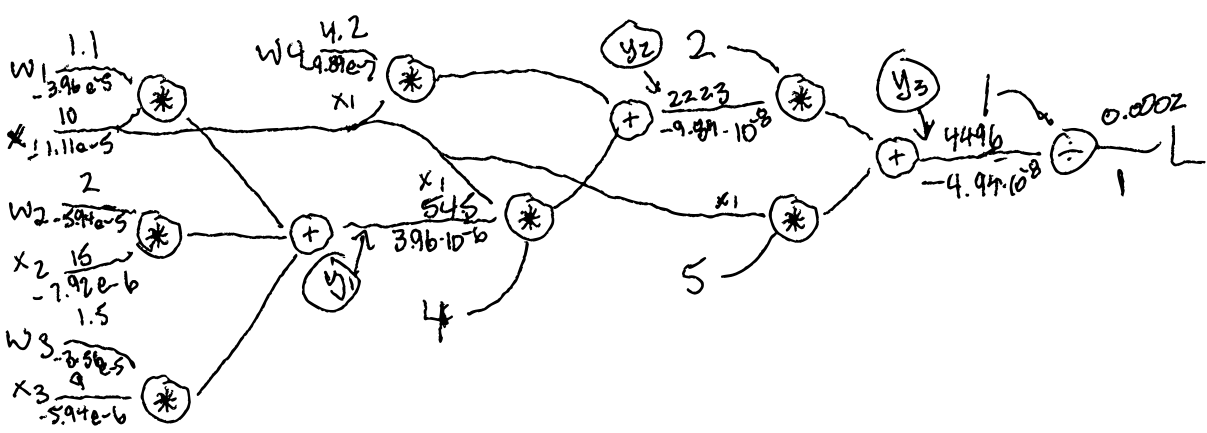 w1 1.1
-3.96e-5
*
10
-1.11e-5
w2 2
-5.94e-5
*
x2 15
-7.92e-6
w3 1.5
-3.56e-5
x3 9
-5.94e-6
*
w4 4.2
-9.89e-7
*
x1
+
y1
x1
54.5
3.96·10^-6
*
4
y2
+
2223
-9.89·10^-8
2
*
x1
*
5
y3
+
4496
-4.94·10^-8
1
÷
0.0002
1
L